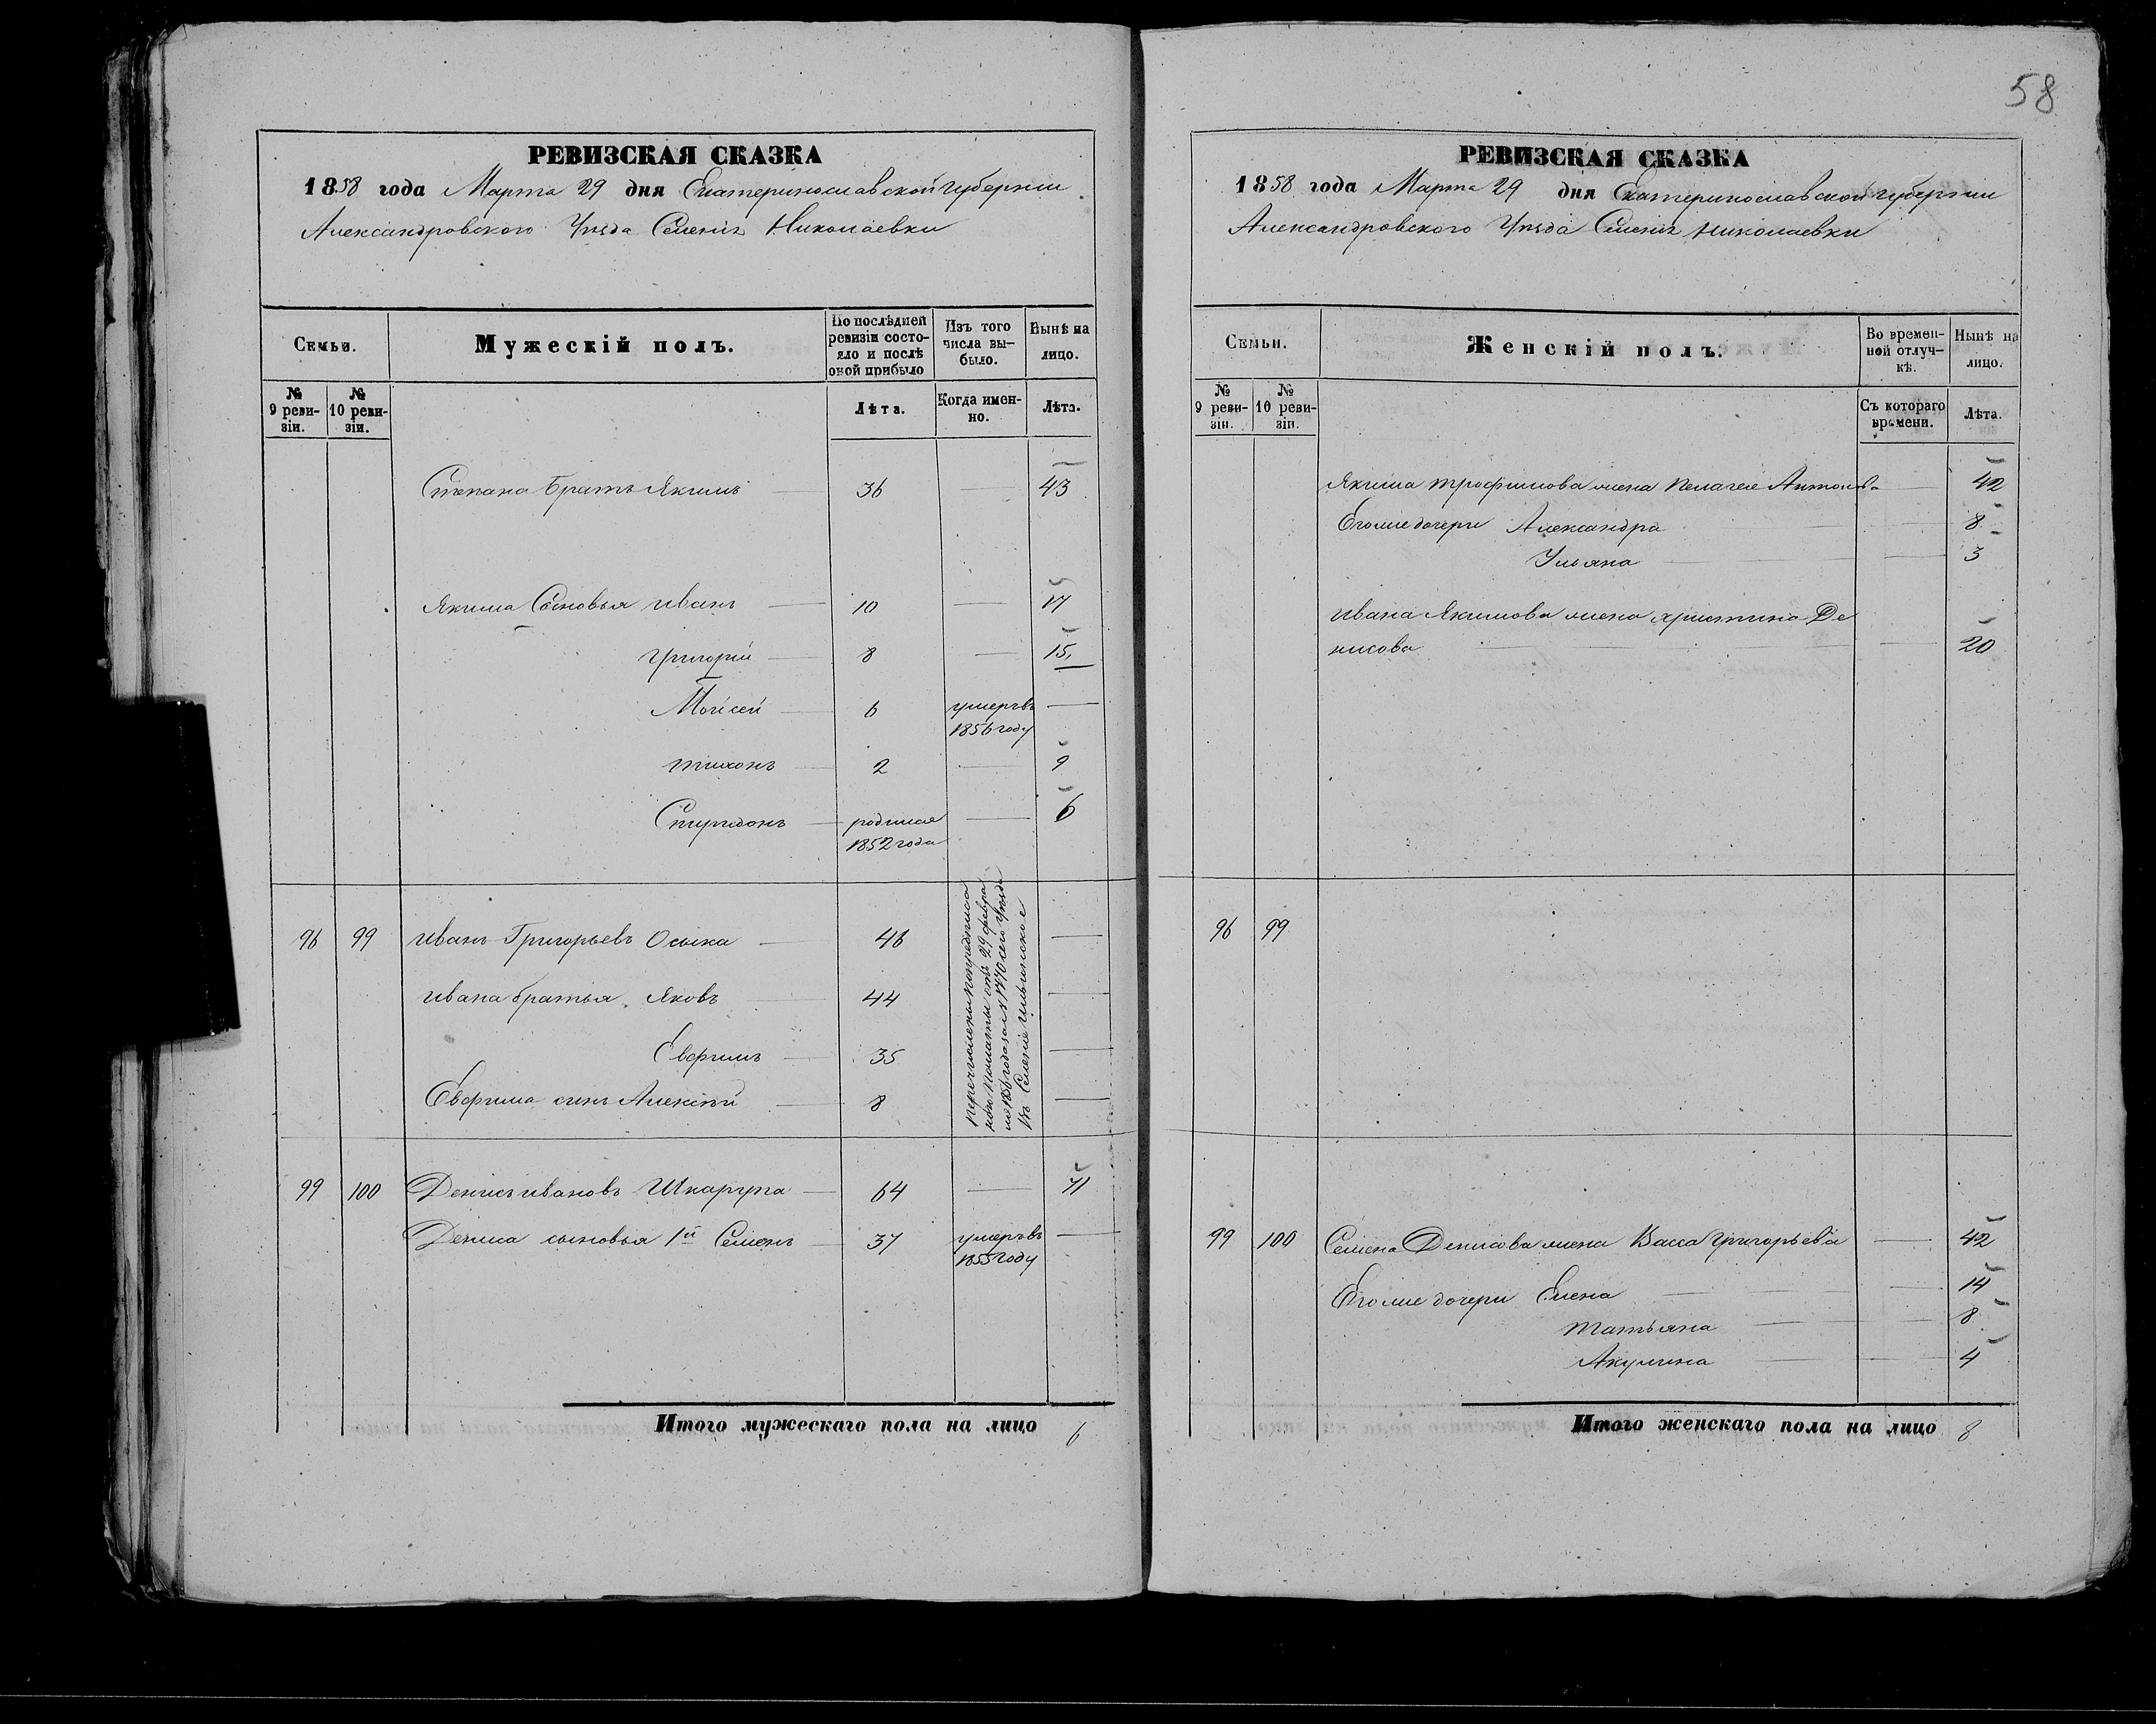 РЕВИЗСКАЯ СКАЗКА
1858 года Марта 29 дня Екатеринославской губернии
Александровского Уѣзда Селенія Николаевки
Семьи.
Мужескій полъ.
По послѣдней ревизіи состояло и послѣ оной прибыло
Изъ того числа выбыло.
Нынѣ на лицо.
№ 9 ревизіи.
№ 10 ревизіи.
Лѣта.
Когда именно.
Лѣта.
Степана братъ Якимъ 36 43
Якима Сыновья иванъ 10 17
григорій 8 15
Мойсей 6 умеръ въ 1856 году
тихонъ 2 9
Спиридонъ родился 1852 года 6
96 99 иванъ Григорьевъ Осыка 46
ивана братья Яковъ 44
Евфимъ 35
Евфима сынъ Алексѣй 8
перечислены по предписанію Палаты отъ 29 февра
1856 года за № 1770 сего Уѣзда
въ Селеніе
99 100 Денисъ ивановъ Шкарупа 64 71
Дениса сыновья 1й Семенъ 37 умеръ въ 1855 году
Итого мужескаго пола на лицо 6
58
РЕВИЗСКАЯ СКАЗКА
1858 года Марта 29 дня Екатеринославской губерніи
Александровского Уѣзда Селенія Николаевки
Семьи.
Женскій полъ.
Во временной отлучкѣ.
Нынѣ на лицо.
№ 9 ревизіи.
№ 10 ревизіи.
Съ котораго времени.
Лѣта.
Якима трофимова жена Пелагея Антонова 42
Его же дочери Александра 8
Ульяна 3
ивана Якимова жена христина Де
нисова 20
96 99
99 100 Семена Денисова жена Васса григорьева 42
Его же дочери Елена 14
татьяна 8
Акулина 4
Итого женскаго пола на лицо 8